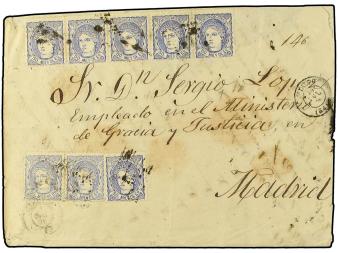 146
Sr. Dn Sergio Lop
Empleado en el Minister
de Gracia y Justicia, en
Madrid